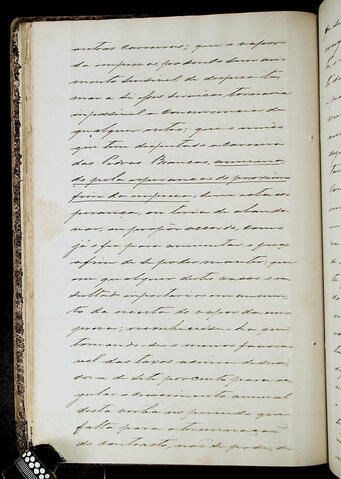 outras carreiras; que o vapor
da empresa, podendo sem au-
mento sensivel de despesa to-
mar a si esse serviço, tornaria
impossivel a concurrencia de
qualquer outro; que o unico
que tem disputado a carreira
das Pedras Brancas, anima-
do pela esperança do proximo
fim da empresa, sem esta es-
perança, ou teria de abando-
nar, ou propor accordo, como
já fez para augmentar o preço
afim de se poder manter; que
em qualquer destes casos re-
sultado importaria em augmen-
to da receita do vapor da em-
presa; reconhecido ha que
tomando-se a menos favora-
vel das taxas acima
de sete por cento para re-
gular o crescimento annual
desta verba no periodo que
falta para a terminação
do contracto, não se pode, de